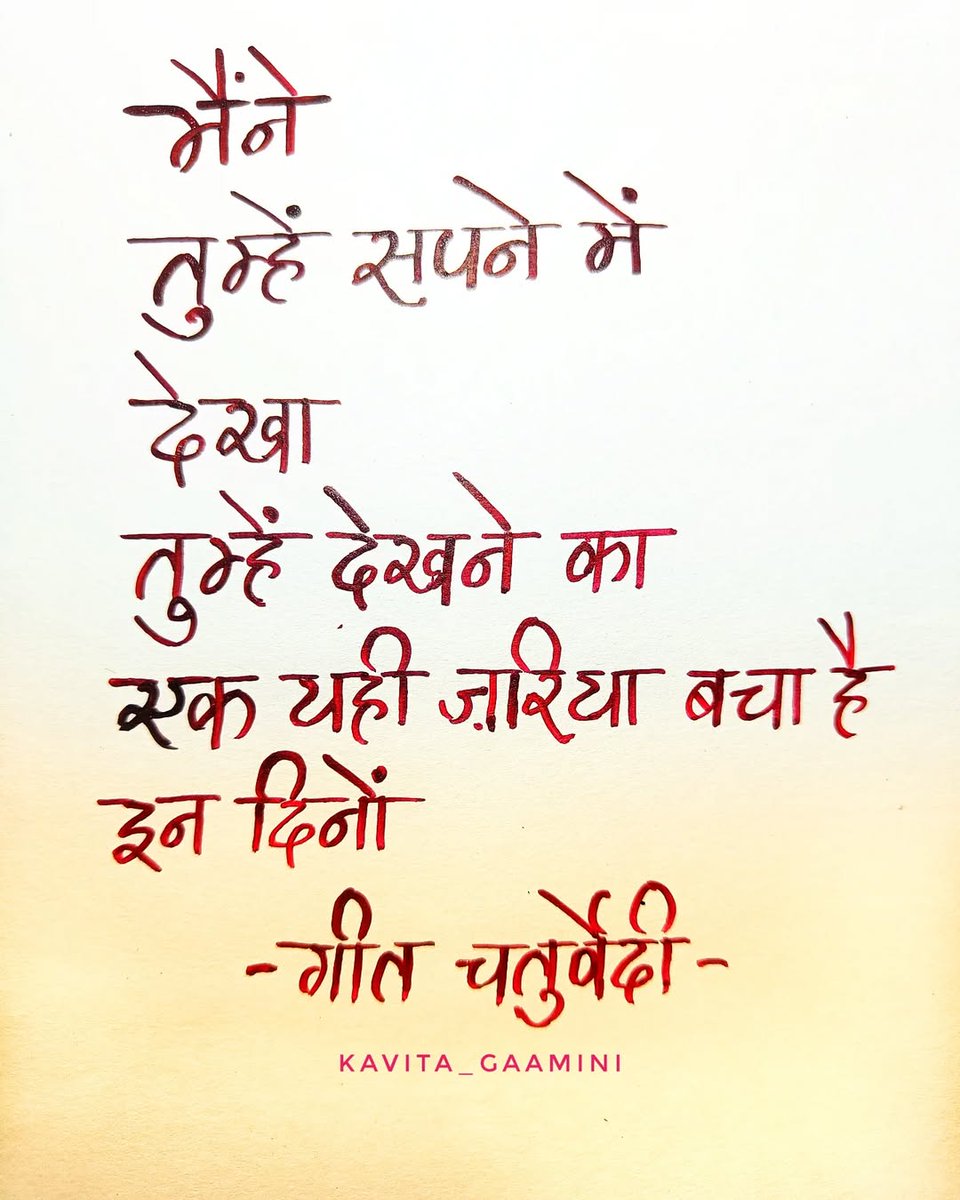 मैंने
तुम्हें सपने में
देखा
तुम्हें देखने का
एक यही ज़रिया बचा है
इन दिनों
-गीत चतुर्वेदी-
KAVITA_GAAMINI